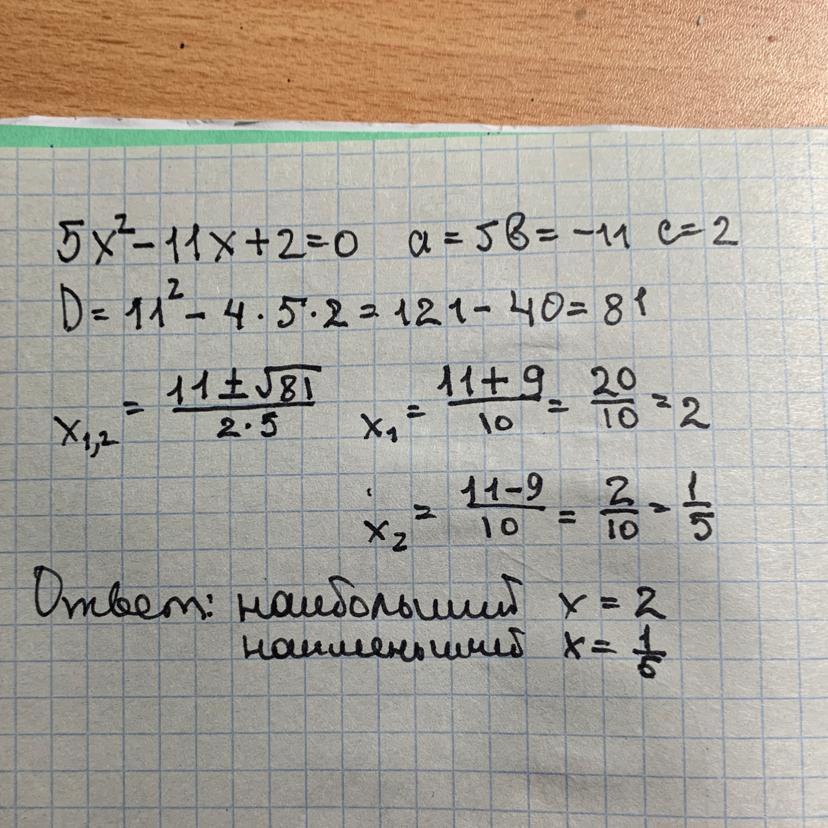 5x² - 11x + 2 = 0 a = 5 в = -11 c = 2
D = 11² - 4 · 5 · 2 = 121 - 40 = 81
x₁,₂ = (11 ± √81)/(2 · 5) x₁ = (11 + 9)/10 = 20/10 = 2
x₂ = (11 - 9)/10 = 2/10 = 1/5
Ответ: наибольший x = 2
наименьший x = 1/5